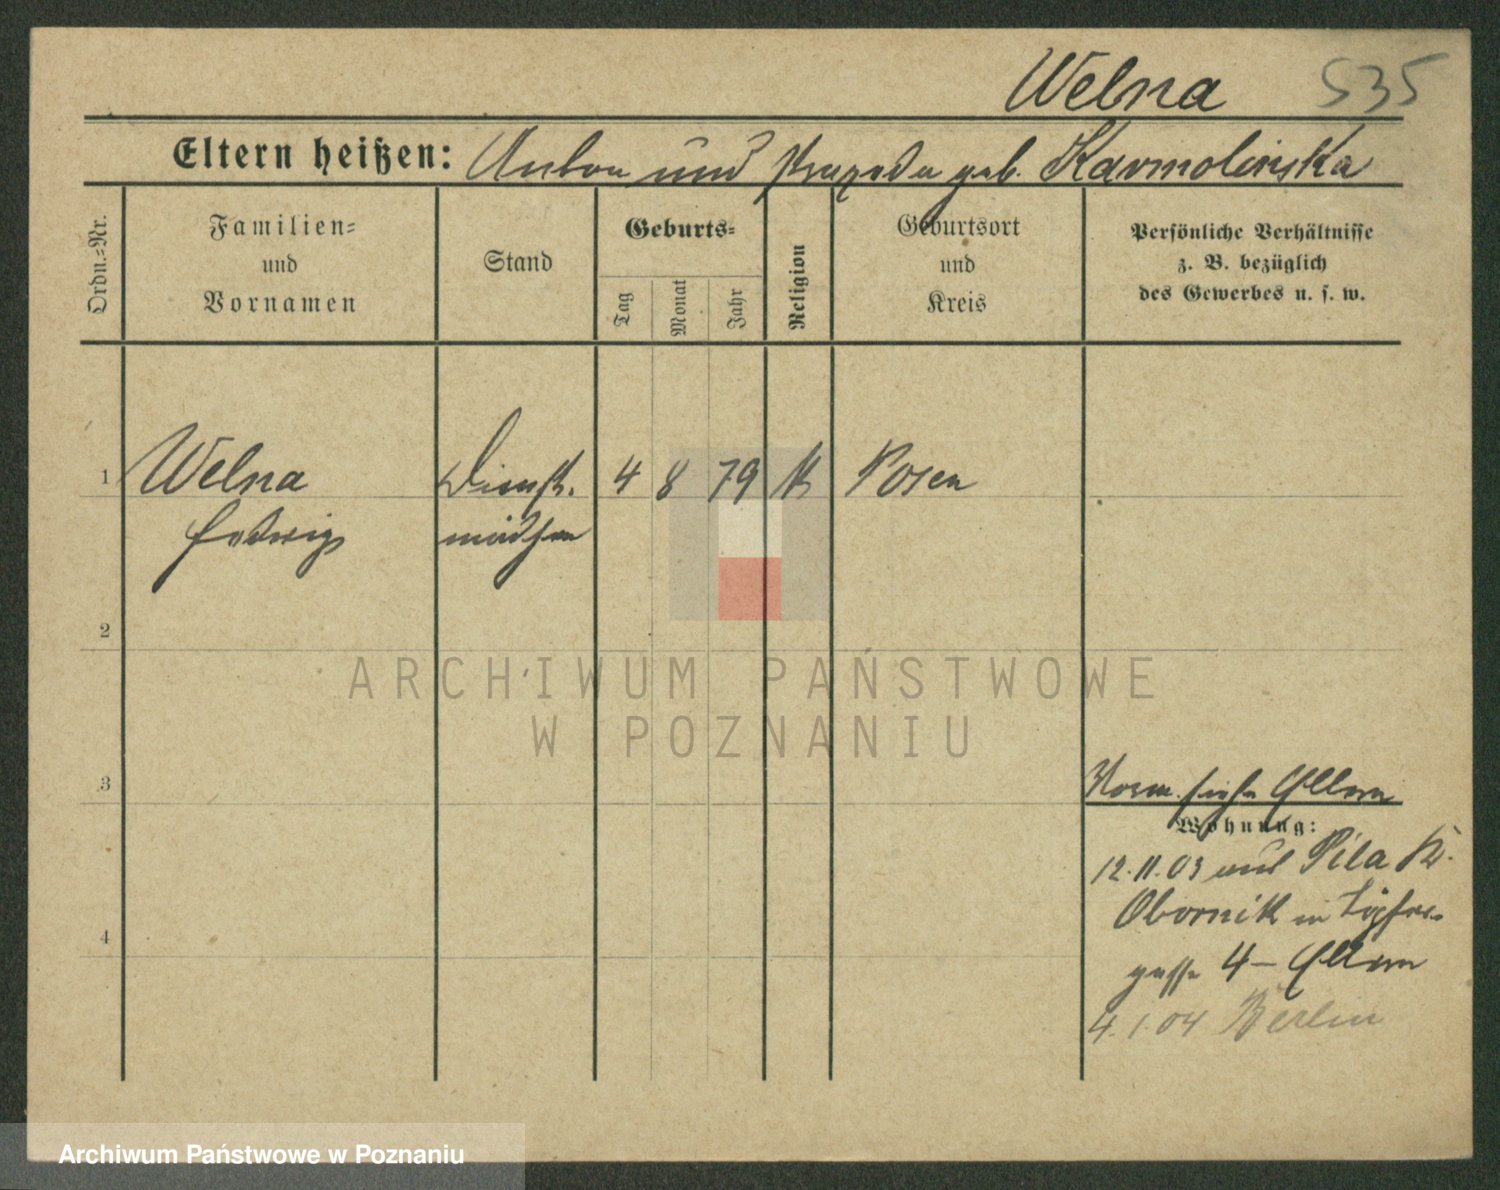 Welna 535
Eltern heißen: Anton und Praxeda geb. Karmolinska
Ordn.=Nr.
Familien=
und
Vornamen
Stand
Geburts=
Tag
Monat
Jahr
Religion
Geburtsort
und
Kreis
Persönliche Verhältnisse
z. B. bezüglich
des Gewerbes u. s. w.
1 Welna Dienst. 4 8 79 K Posen
Hedwig mädchen
2
ARCHIWUM PAŃSTWOWE
W POZNANIU
3
siehe Eltern
Wohnung:
12.11.03 aus Pila Kr.
Obornik in Töpfer-
4
gasse 4 – Eltern
4.1.04 Berlin
Archiwum Państwowe w Poznaniu